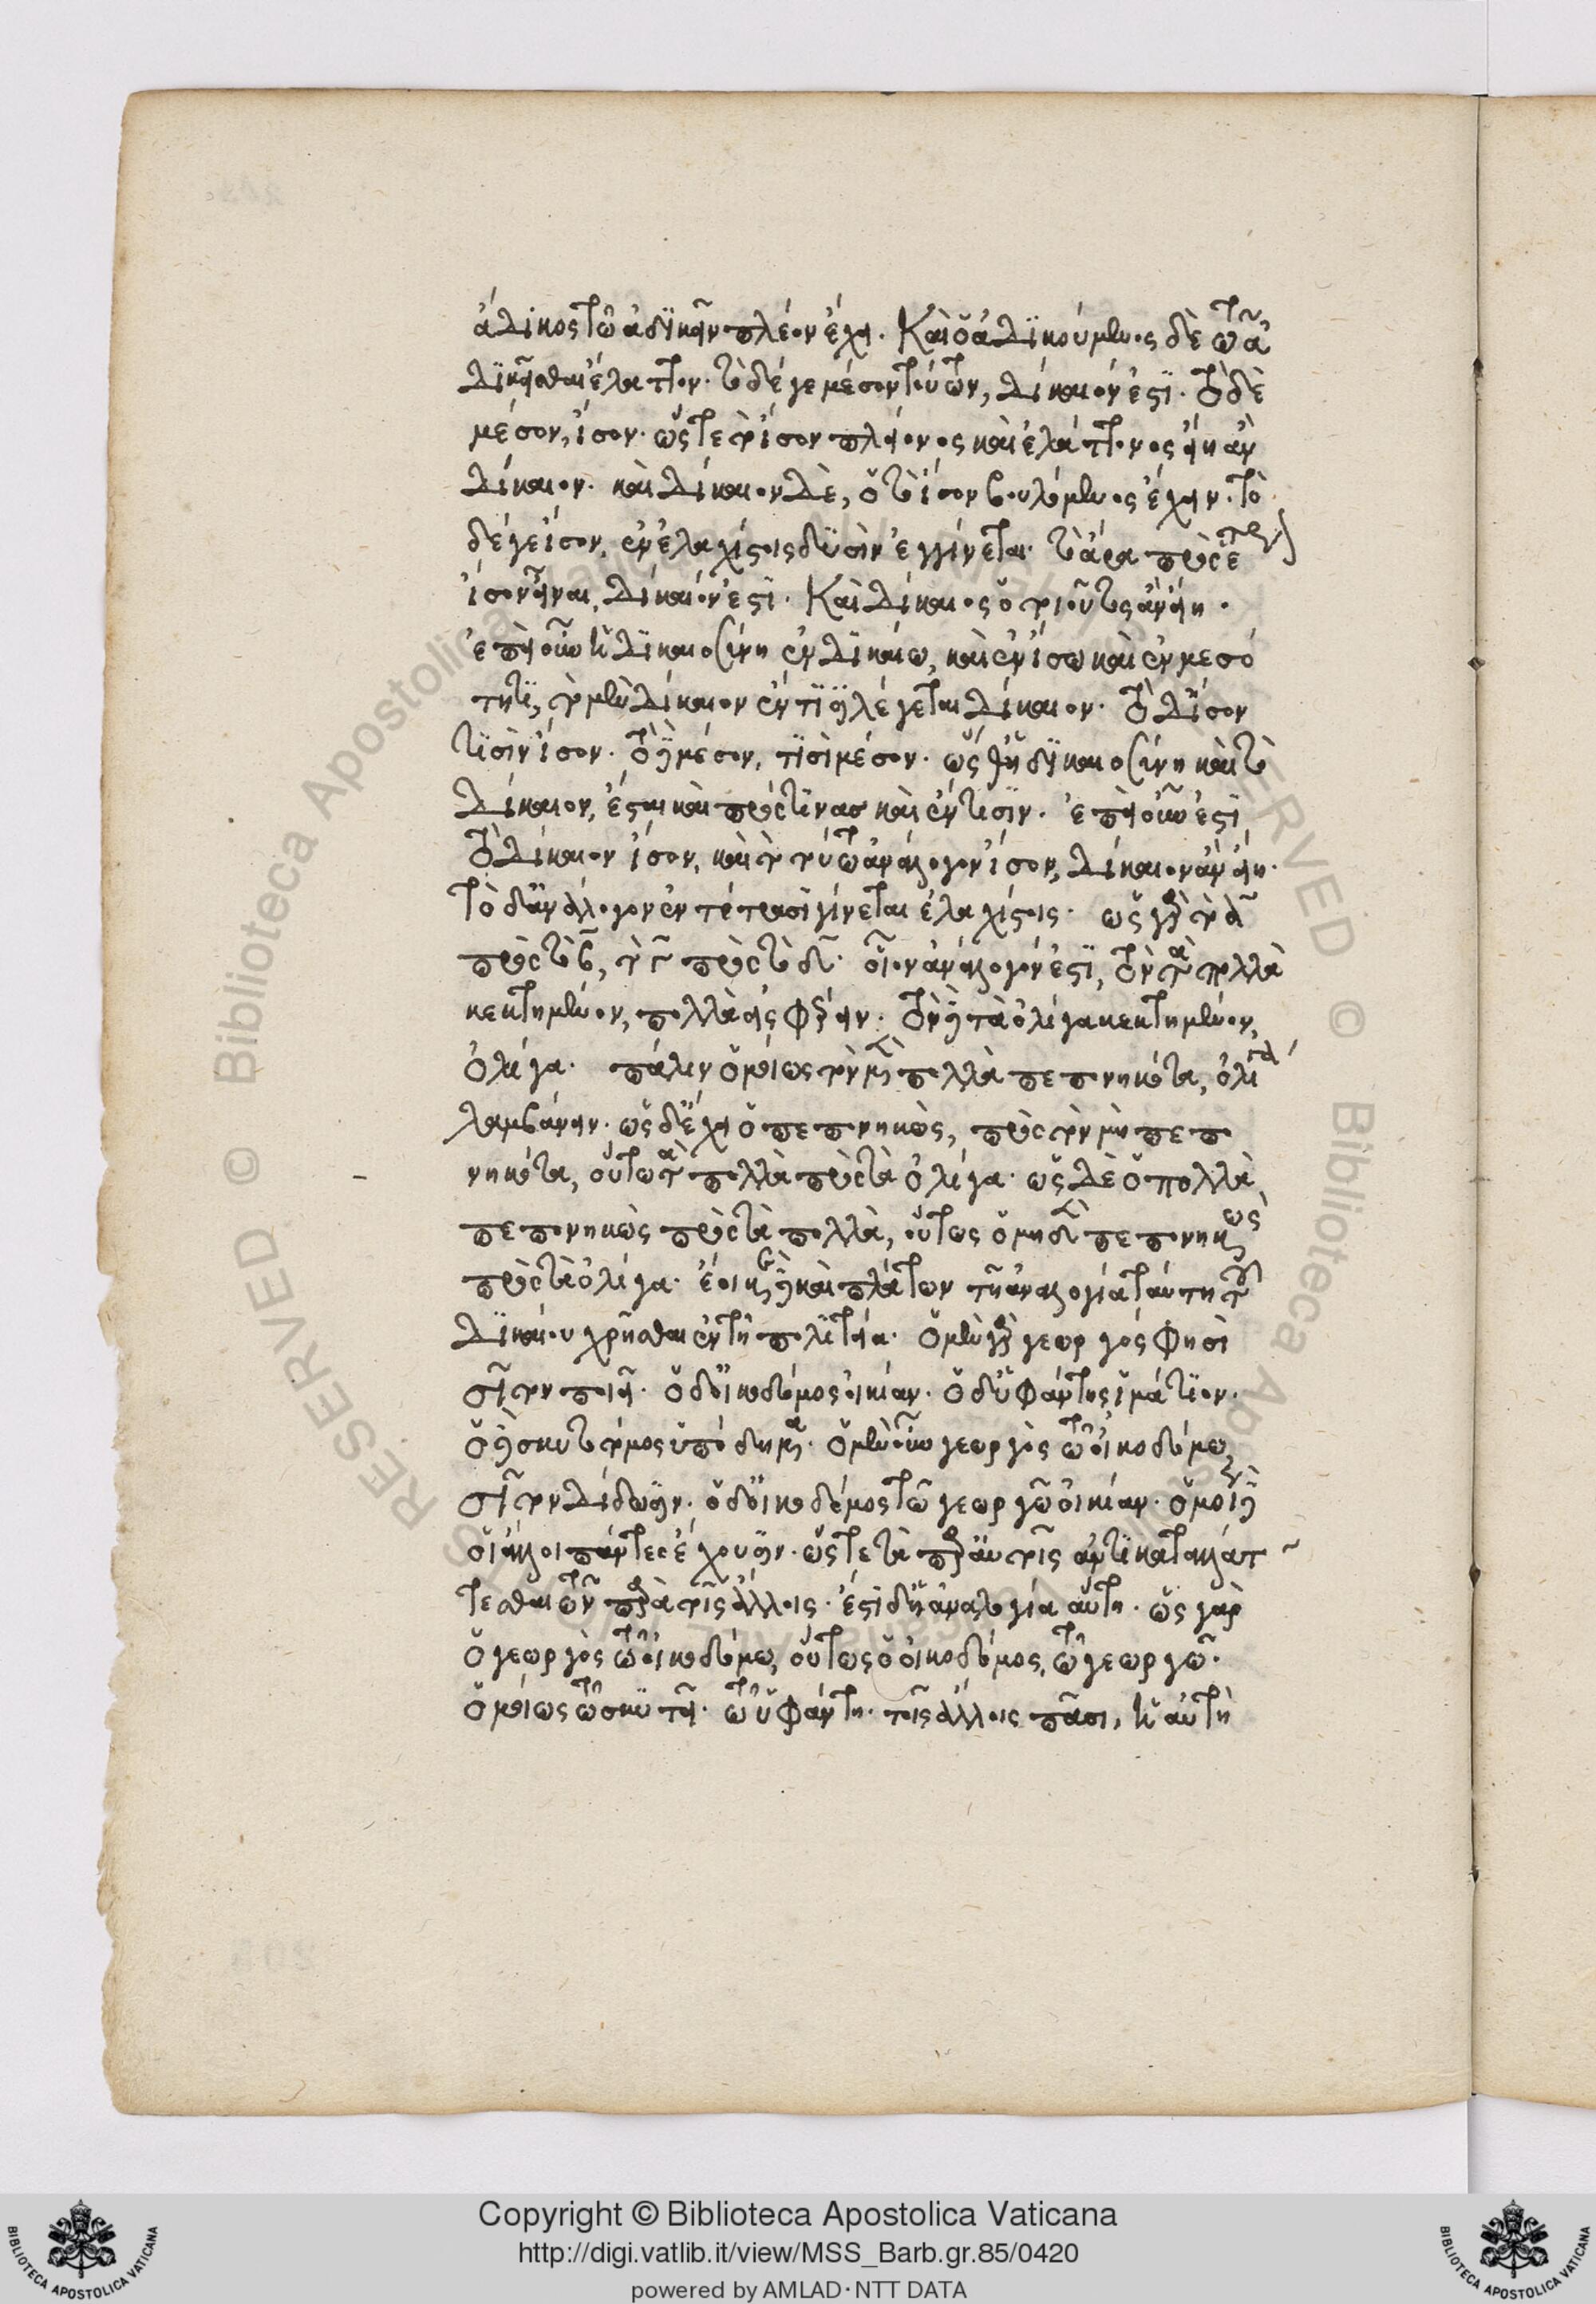 ἄδικος τῶ ἀδικεῖν πλέον ἔχει. Καὶ ὁ ἀδικούμενος δὲ τῶ ἀ
δικεῖσθαι ἔλαττον. τὸ δέ γε μέσον τούτων, δίκαιόν ἐστι. τὸ δὲ
μέσον, ἴσον. ὥστε τὸ ἴσον πλείονος καὶ ἐλάττονος εἴη ἂν
δίκαιον. καὶ δίκαιον δὲ, ὁ τὸ ἴσον βουλόμενος ἔχειν. τὸ
δέ γε ἴσον, ἐν ἐλαχίστοις δυσὶν ἐγγίνεται. τὸ ἄρα πρὸς ἕτερον
ἴσον εἶναι, δίκαιόν ἐστι. Καὶ δίκαιος ὁ τοιοῦτος ἂν εἴη.
ἐπεὶ οὖν ἡ δικαιοσύνη ἐν δικαίω, καὶ ἐν ἴσω καὶ ἐν μεσό
τητι, τὸ μὲν δίκαιον ἔν τισι λέγεται δίκαιον. τὸ δ' ἴσον
τισὶν ἴσον. τὸ δὲ μέσον, τισὶ μέσον. ὥσθ' ἡ δικαιοσύνη καὶ τὸ
δίκαιον, ἔσται καὶ πρός τινας καὶ ἔν τισιν. ἐπεὶ οὖν ἐστὶ
τὸ δίκαιον ἴσον, καὶ τὸ τούτω ἀνάλογον ἴσον, δίκαιον ἂν εἴη.
τὸ δ' ἀνάλογον ἐν τέτρασι γίνεται ἐλαχίστοις. ὡς γὰρ τὸ α̃
πρὸς τὸ β̃, τὸ γ̃ πρὸς τὸ δ̃. οἷον ἀνάλογόν ἐστι, τὸν τὰ πολλὰ
κεκτημένον, πολλὰ εἰσφέρειν. τὸν δὲ τὰ ὀλίγα κεκτημένον,
ὀλίγα. πάλιν ὁμοίως τὸν μὴ πολλὰ πεπονηκότα, ὀλίγα
λαμβάνειν. ὡς δ' ἔχει ὁ πεπονηκὼς, πρὸς τὸν μὴ πεπο
νηκότα, οὕτω τὰ πολλὰ πρὸς τὰ ὀλίγα. ὡς δὲ ὁ πολλὰ
πεπονηκὼς πρὸς τὰ πολλὰ, οὕτως ὁ μηδὲν πεπονηκὼς
πρὸς τὰ ὀλίγα. ἔοικε δὲ καὶ πλάτων τῆ ἀναλογία ταύτη τοῦ
δικαίου χρῆσθαι ἐν τῆ πολιτεία. ὁ μὲν γὰρ γεωργός φησι
σῖτον ποιεῖ. ὁ δ' οἰκοδόμος οἰκίαν. ὁ δ' ὑφάντης ἱμάτιον.
ὁ δὲ σκυτοτόμος ὑπόδημα. ὁ μὲν οὖν γεωργὸς τῶ οἰκοδόμω
σῖτον δίδωσιν. ὁ δ' οἰκοδόμος τῶ γεωργῶ οἰκίαν. ὁμοίως δὲ
οἱ ἄλλοι πάντες ἔχουσιν. ὥστε τὰ παρ' αὐτοῖς ἀντικαταλλάτ
τεσθαι τῶν παρὰ τοῖς ἄλλοις. ἔστι δ' ἡ ἀναλογία αὕτη. ὡς γὰρ
ὁ γεωργὸς τῶ οἰκοδόμω, οὕτως ὁ οἰκοδόμος, τῶ γεωργῶ.
ὁμοίως τῶ σκυτεῖ. τῶ ὑφάντη. τοῖς ἄλλοις πᾶσι, ἡ αὐτὴ
Copyright © Biblioteca Apostolica Vaticana
http://digi.vatlib.it/view/MSS_Barb.gr.85/0420
powered by AMLAD · NTT DATA